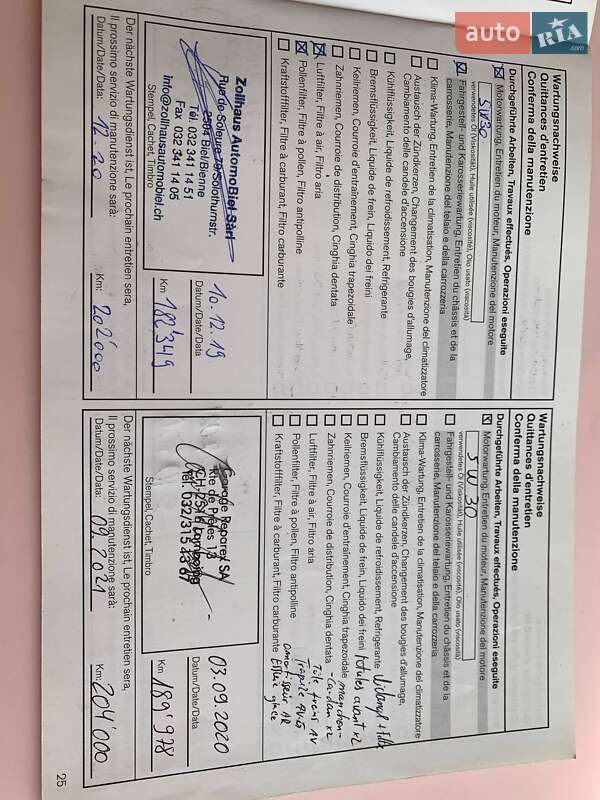 auto RIA .com
Wartungsnachweise
Quittances d'entretien
Conferma della manutenzione
Durchgeführte Arbeiten, Travaux effectués, Operazioni eseguite
Motorwartung, Entretien du moteur, Manutenzione del motore
5W30
verwendetes Öl (Viscosität), Huile utilisée (viscosité), Olio usato (viscosità)
Fahrgestell- und Karosseriewartung, Entretien du châssis et de la
carrosserie, Manutenzione del telaio e della carrozzeria
Klima-Wartung, Entretien de la climatisation, Manutenzione del climatizzatore
Austausch der Zündkerzen, Changement des bougies d'allumage,
Cambiamento delle candele d'accensione
Kühlflüssigkeit, Liquide de refroidissement, Refrigerante
Bremsflüssigkeit, Liquide de frein, Liquido dei freini
Keilriemen, Courroie d'entraînement, Cinghia trapezoidale
Zahnriemen, Courroie de distribution, Cinghia dentata
Luftfilter, Filtre à air, Filtro aria
Pollenfilter, Filtre à pollen, Filtro antipolline
Kraftstofffilter, Filtre à carburant, Filtro carburante
Zollhaus AutomoBiel Sàrl
Rue de Soleure 79 Solothurnstr.
2504 Biel/Bienne
Tél. 032 341 14 51
Fax 032 341 14 05
info@zollhausautomobiel.ch
Stempel, Cachet, Timbro
10.12.19
Datum/Date/Data
182'349
Km
Der nächste Wartungsdienst ist, Le prochain entretien sera,
Il prossimo servizio di manutenzione sarà:
Datum/Date/Data: 12.20 Km: 202'000
Wartungsnachweise
Quittances d'entretien
Conferma della manutenzione
Durchgeführte Arbeiten, Travaux effectués, Operazioni eseguite
Motorwartung, Entretien du moteur, Manutenzione del motore
5W30
verwendetes Öl (Viscosität), Huile utilisée (viscosité), Olio usato (viscosità)
Fahrgestell- und Karosseriewartung, Entretien du châssis et de la
carrosserie, Manutenzione del telaio e della carrozzeria
Klima-Wartung, Entretien de la climatisation, Manutenzione del climatizzatore
Austausch der Zündkerzen, Changement des bougies d'allumage,
Cambiamento delle candele d'accensione
Kühlflüssigkeit, Liquide de refroidissement, Refrigerante
Bremsflüssigkeit, Liquide de frein, Liquido dei freini
Keilriemen, Courroie d'entraînement, Cinghia trapezoidale
Zahnriemen, Courroie de distribution, Cinghia dentata
Luftfilter, Filtre à air, Filtro aria
Pollenfilter, Filtre à pollen, Filtro antipolline
Kraftstofffilter, Filtre à carburant, Filtro carburante
avant x2
Cardan x2
Tole freins AV
amortisseur AR
glace
Garage Reparex SA
Rte de Prêles 11
Tél. 032/315
Stempel, Cachet, Timbro
03.09.2020
Datum/Date/Data
189'978
Km
Der nächste Wartungsdienst ist, Le prochain entretien sera,
Il prossimo servizio di manutenzione sarà:
Datum/Date/Data: 09.2021 Km: 204'000
25